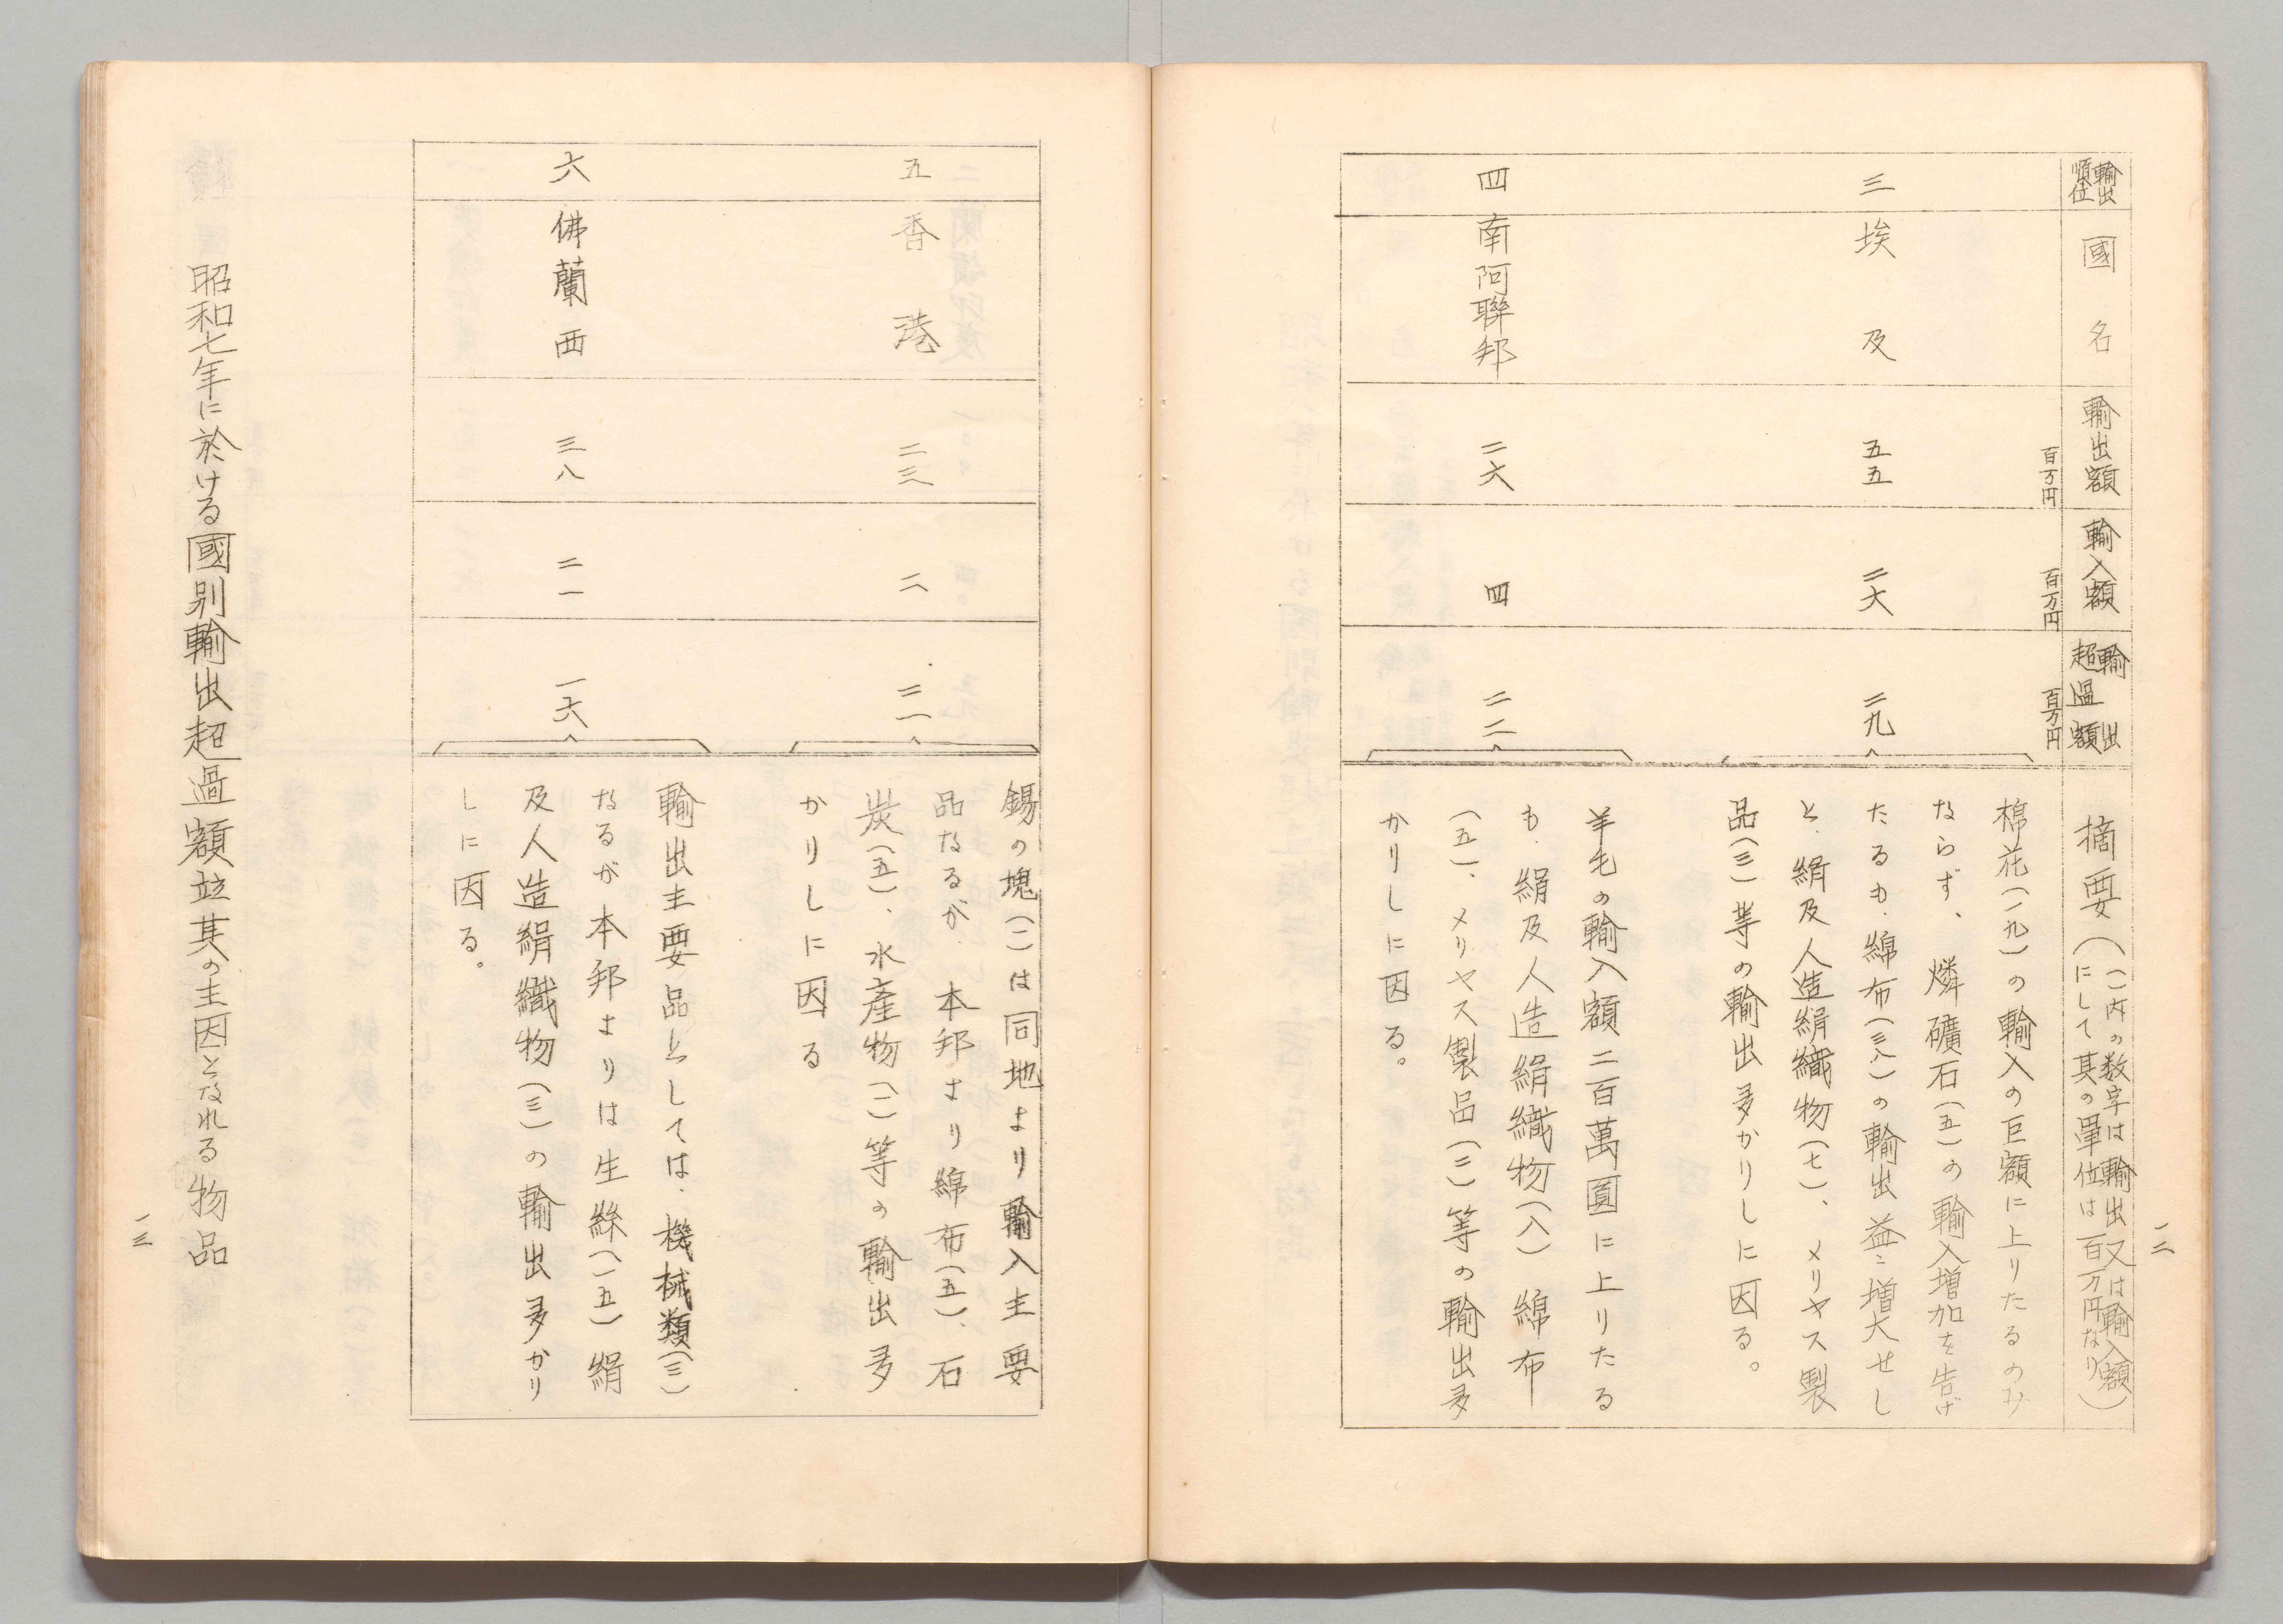 一二
輸出順位
國名
輸出額
百万円
輸入額
百万円
輸出超過額
百万円
摘要（（）内の数字は輸出又は輸入額にして其の單位は百万円なり）
三
埃及
五五
二六
二九
棉花（一九）の輸入の巨額に上りたるのみ
ならず、燐礦石（五）の輸入増加を告げ
たるも、綿布（三八）の輸出益〻増大せし
と、絹及人造絹織物（七）、メリヤス製
品（三）等の輸出多かりしに因る。
四
南阿聯邦
二六
四
二二
羊毛の輸入額二百萬圓に上りたる
も、絹及人造絹織物（八）綿布
（五）、メリヤス製品（二）等の輸出多
かりしに因る。
五
香港
二三
二
二一
錫の塊（一）は同地より輸入主要
品なるが、本邦より綿布（五）、石
炭（五）、水產物（二）等の輸出多
かりしに因る
六
佛蘭西
三八
二一
一六
輸出主要品としては、機械類（三）
なるが本邦よりは生絲（一五）絹
及人造絹織物（三）の輸出多かり
しに因る。
昭和七年に於ける國別輸出超過額竝其の主因となれる物品
一三